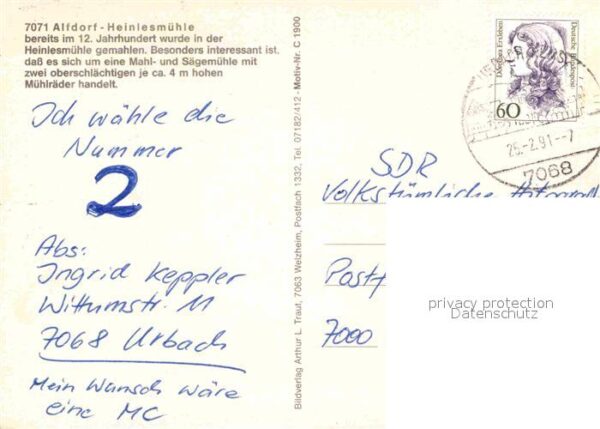 7071 Alfdorf - Heinlesmühle
bereits im 12. Jahrhundert wurde in der
Heinlesmühle gemahlen. Besonders interessant ist,
daß es sich um eine Mahl- und Sägemühle mit
zwei oberschlächtigen je ca. 4 m hohen
Mühlräder handelt.
Ich wähle die
Nummer
2
Abs:
Ingrid Keppler
Wittumstr. 11
7068 Urbach
Mein Wunsch wäre
eine MC
Bildverlag Arthur L. Traut, 7063 Welzheim, Postfach 1332, Tel. 07182/412 - Motiv-Nr. C 1900
Dorothea Erxleben
Deutsche Bundespost
60
25.-2.91--7
7068
SDR
Volkstümliche
Postf
7000
privacy protection
Datenschutz